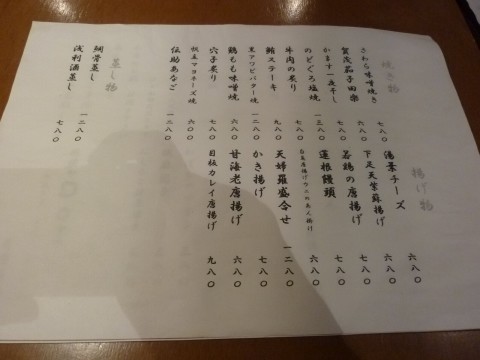 焼き物
さわら味噌焼き 七八〇
賀茂茄子田楽 六八〇
かます一夜干し 七八〇
のどぐろ塩焼 一三八〇
牛肉の炙り 七八〇
鮪ステーキ 九八〇
黒アワビバター焼 一二八〇
鶏もも味噌焼 六八〇
穴子炙り 七八〇
帆立マヨネーズ焼 六〇〇
伝助あなご 一二八〇
蒸し物
鯛骨蒸し 一二八〇
浅利酒蒸し 七八〇
揚げ物
湯葉チーズ 六八〇
下足天紫蘇揚げ 六八〇
若鶏の唐揚げ 七八〇
蓮根饅頭 六八〇
天婦羅盛合せ 一二八〇
かき揚げ 七八〇
甘海老唐揚げ 六八〇
目板カレイ唐揚げ 九八〇